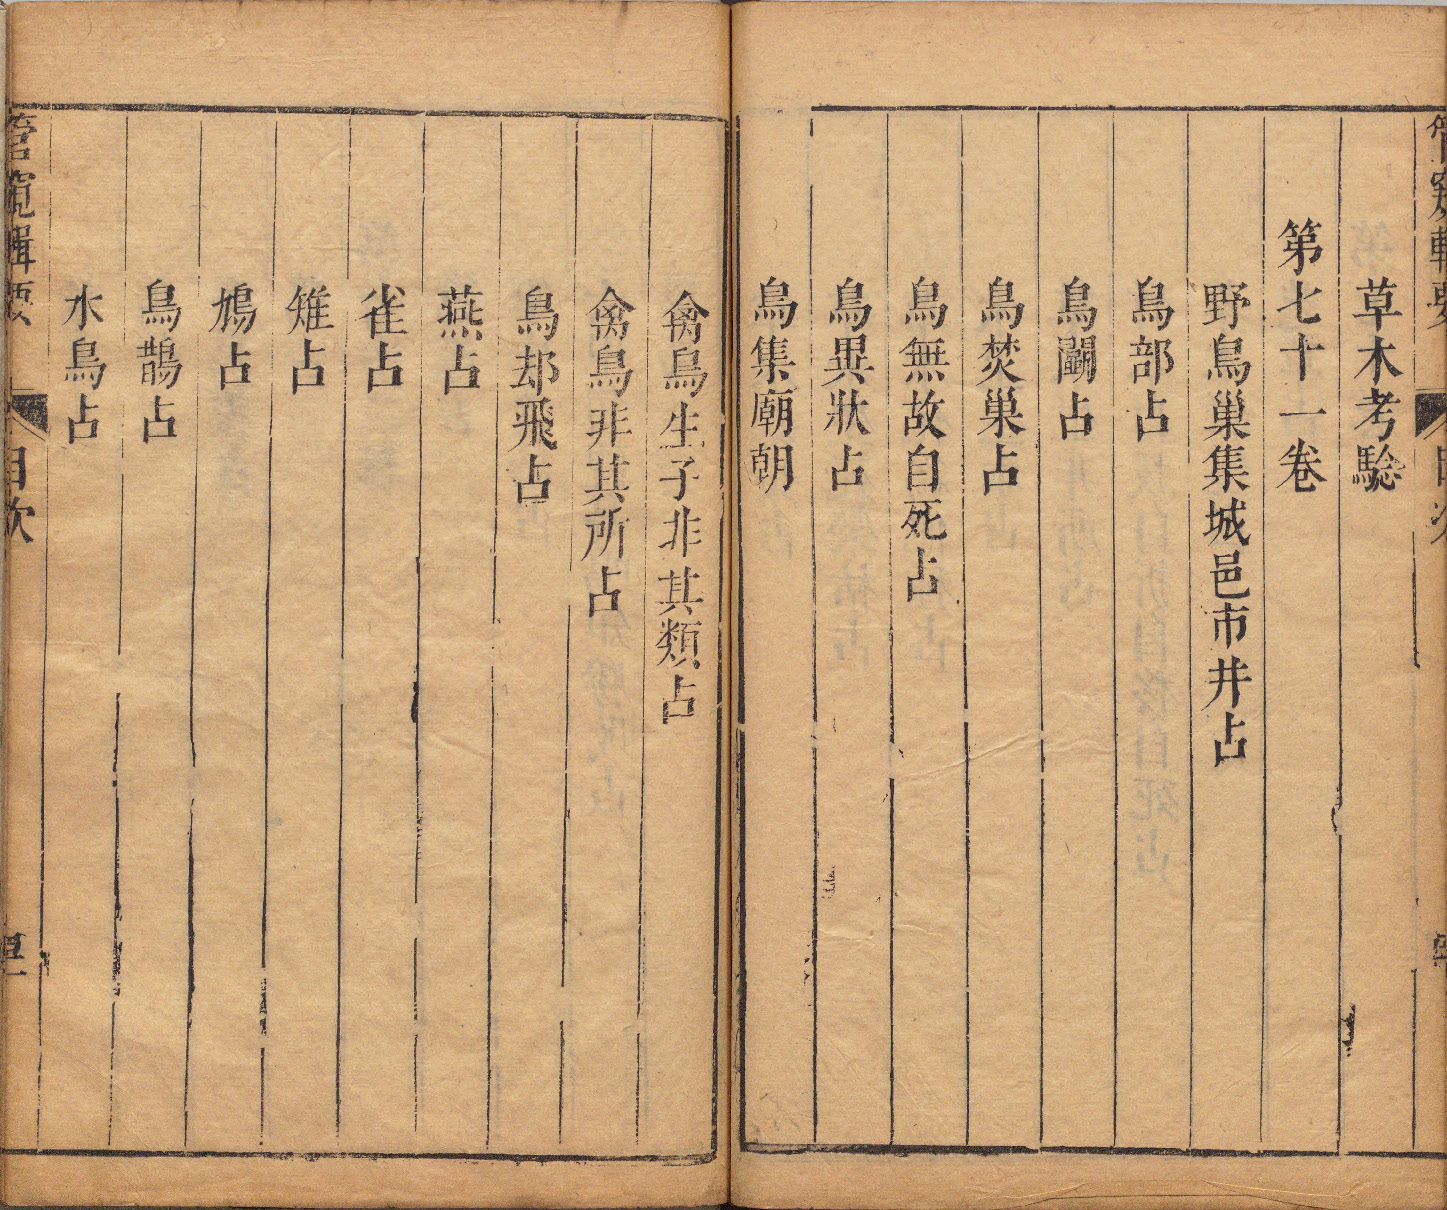 草木考驗
第七十一卷
野鳥巢集城邑市井占
鳥部占
鳥鬬占
鳥焚巢占
鳥無故自死占
鳥異狀占
鳥集廟朝
禽鳥生子非其類占
禽鳥非其所占
鳥却飛占
燕占
雀占
雉占
鳩占
烏鵲占
水鳥占
管窺輯要
目次